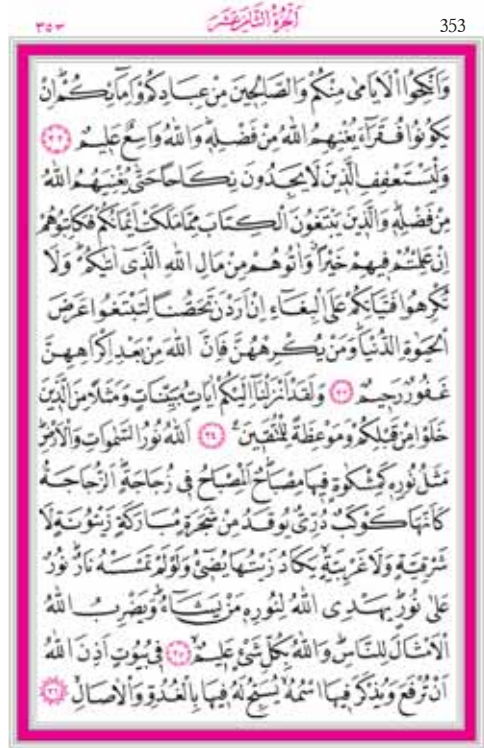 ٣٥٣ اَلْجُزْءُ الثَّامِنَ عَشَرَ 353
وَاَنْكِحُوا الْاَيَامٰى مِنْكُمْ وَالصَّالِحٖينَ مِنْ عِبَادِكُمْ وَاِمَٓائِكُمْ اِنْ
يَكُونُوا فُقَرَٓاءَ يُغْنِهِمُ اللّٰهُ مِنْ فَضْلِهٖ وَاللّٰهُ وَاسِعٌ عَلٖيمٌ ﴿٣٢﴾
وَلْيَسْتَعْفِفِ الَّذٖينَ لَا يَجِدُونَ نِكَاحًا حَتّٰى يُغْنِيَهُمُ اللّٰهُ
مِنْ فَضْلِهٖ وَالَّذٖينَ يَبْتَغُونَ الْكِتَابَ مِمَّا مَلَكَتْ اَيْمَانُكُمْ فَكَاتِبُوهُمْ
اِنْ عَلِمْتُمْ فٖيهِمْ خَيْرًا وَاٰتُوهُمْ مِنْ مَالِ اللّٰهِ الَّذٖٓى اٰتٰيكُمْ وَلَا
تُكْرِهُوا فَتَيَاتِكُمْ عَلَى الْبِغَٓاءِ اِنْ اَرَدْنَ تَحَصُّنًا لِتَبْتَغُوا عَرَضَ
الْحَيٰوةِ الدُّنْيَا وَمَنْ يُكْرِهْهُنَّ فَاِنَّ اللّٰهَ مِنْ بَعْدِ اِكْرَاهِهِنَّ
غَفُورٌ رَحٖيمٌ ﴿٣٣﴾ وَلَقَدْ اَنْزَلْنَٓا اِلَيْكُمْ اٰيَاتٍ مُبَيِّنَاتٍ وَمَثَلًا مِنَ الَّذٖينَ
خَلَوْا مِنْ قَبْلِكُمْ وَمَوْعِظَةً لِلْمُتَّقٖينَ ﴿٣٤﴾ اَللّٰهُ نُورُ السَّمٰوَاتِ وَالْاَرْضِ
مَثَلُ نُورِهٖ كَمِشْكٰوةٍ فٖيهَا مِصْبَاحٌ اَلْمِصْبَاحُ فٖى زُجَاجَةٍ اَلزُّجَاجَةُ
كَاَنَّهَا كَوْكَبٌ دُرِّىٌّ يُوقَدُ مِنْ شَجَرَةٍ مُبَارَكَةٍ زَيْتُونَةٍ لَا
شَرْقِيَّةٍ وَلَا غَرْبِيَّةٍ يَكَادُ زَيْتُهَا يُضٖٓىءُ وَلَوْ لَمْ تَمْسَسْهُ نَارٌ نُورٌ
عَلٰى نُورٍ يَهْدِى اللّٰهُ لِنُورِهٖ مَنْ يَشَٓاءُ وَيَضْرِبُ اللّٰهُ
الْاَمْثَالَ لِلنَّاسِ وَاللّٰهُ بِكُلِّ شَىْءٍ عَلٖيمٌ ﴿٣٥﴾ فٖى بُيُوتٍ اَذِنَ اللّٰهُ
اَنْ تُرْفَعَ وَيُذْكَرَ فٖيهَا اسْمُهُ يُسَبِّحُ لَهُ فٖيهَا بِالْغُدُوِّ وَالْاٰصَالِ ﴿٣٦﴾